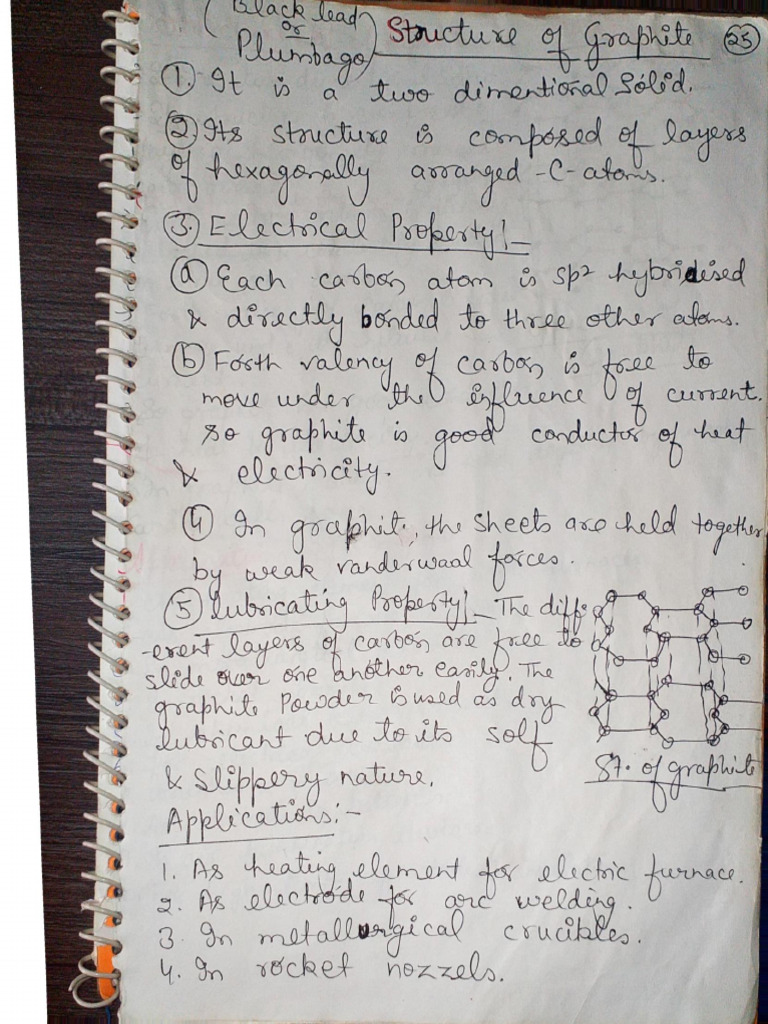 (Black lead
or
Plumbago) Structure of Graphite 25
1. It is a two dimentional Solid.
2. Its structure is composed of layers
of hexagonally arranged -C-atoms.
3. Electrical Property!-
a Each carbon atom is sp² hybridised
& directly bonded to three other atoms.
b Forth valency of carbon is free to
move under the influence of current.
so graphite is good conductor of heat
& electricity.
4 In graphit, the sheets are held together
by weak vanderwaal forces.
5 Lubricating Property!- The diff-
-erent layers of carbon are free to
slide over one another easily. The
graphite Powder is used as dry
lubricant due to its soft
& slippery nature.
St. of graphite
Applications:-
1. As heating element for electric furnace.
2. As electrode for arc welding.
3. In metallurgical crucibles.
4. In rocket nozzels.